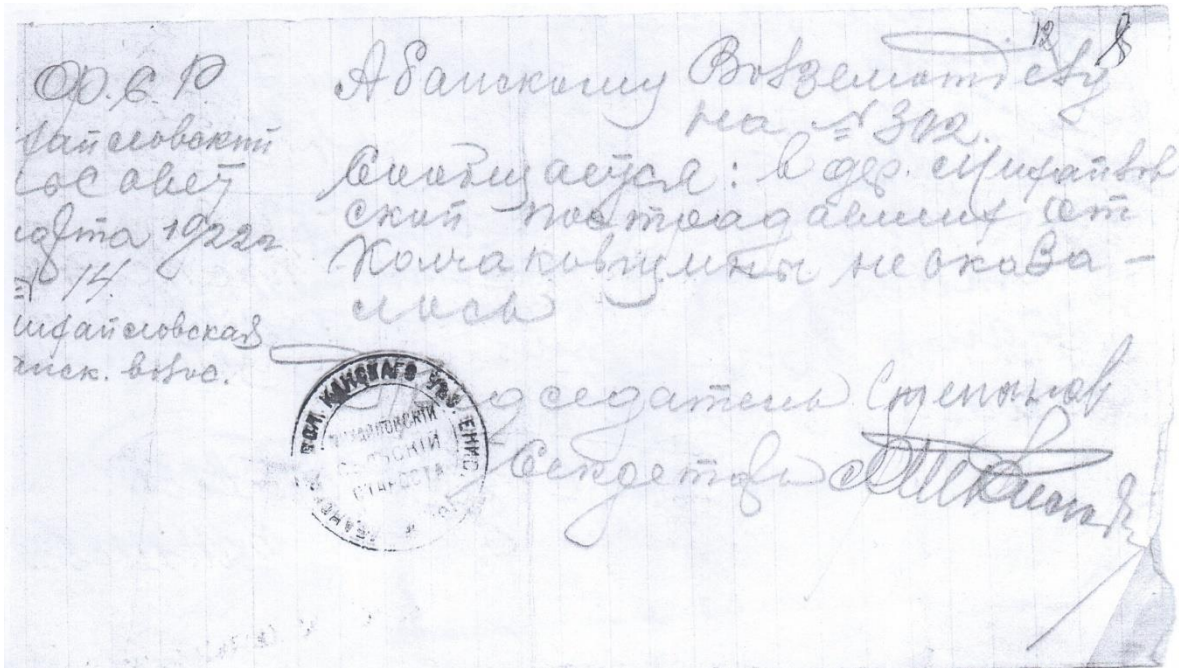 12 8
Ф.С.Р.
хайловский
совет
марта 1922 г
№ 14
ихайловская
анск. волос.
Абанскому Волземотделу
на № 302.
Сообщается: в дер. Михайлов
ской постродавших от
Колчаковщины не оказа-
лось
Председатель Степанов
Секретарь
ВОЛ. КАНСКАГО УѢЗ. ЕНИС
МИХАЙЛОВСКІЙ
СЕЛЬСКІЙ
СТАРОСТА